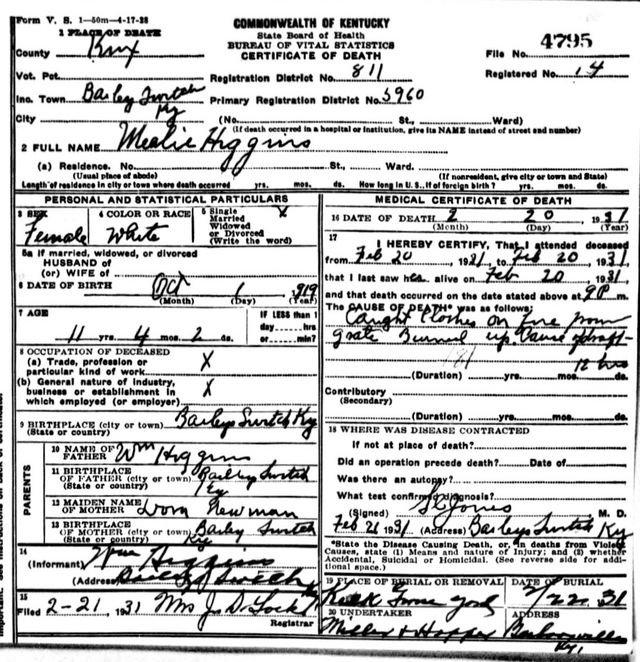 Form V. S. 1—50m—4-17-28
1 PLACE OF DEATH
COMMONWEALTH OF KENTUCKY
State Board of Health
BUREAU OF VITAL STATISTICS
CERTIFICATE OF DEATH
File No. 4795
Registered No. 14
County Knx
Vot. Pct.
Registration District No. 811
Inc. Town Bailey Switch Ky
Primary Registration District No. 5960
City (No. St., Ward)
(If death occurred in a hospital or institution, give its NAME instead of street and number)
2 FULL NAME Mealie Higgins
(a) Residence. No. St., Ward.
(Usual place of abode) (If nonresident, give city or town and State)
Length of residence in city or town where death occurred yrs. mos. ds. How long in U. S., if of foreign birth? yrs. mos. ds.
PERSONAL AND STATISTICAL PARTICULARS
3 SEX Female
4 COLOR OR RACE White
5 Single X
Married
Widowed
or Divorced
(Write the word)
5a If married, widowed, or divorced
HUSBAND of
(or) WIFE of
6 DATE OF BIRTH Oct 1 1919
(Month) (Day) (Year)
7 AGE
11 yrs. 4 mos. 2 ds.
IF LESS than 1
day hrs
or min?
8 OCCUPATION OF DECEASED
(a) Trade, profession or
particular kind of work X
(b) General nature of industry,
business or establishment in
which employed (or employer) X
9 BIRTHPLACE (city or town) Baileys Switch Ky
(State or country)
PARENTS
10 NAME OF
FATHER Wm Higgins
11 BIRTHPLACE
OF FATHER (city or town) Bailey Switch
(State or country) Ky
12 MAIDEN NAME
OF MOTHER Dora Newman
13 BIRTHPLACE
OF MOTHER (city or town) Bailey Switch
(State or country) Ky
14
(Informant) Wm Higgins
(Address) Bailey Switch Ky
15
Filed 2-21, 1931 Mrs J. D. Lock
Registrar
MEDICAL CERTIFICATE OF DEATH
16 DATE OF DEATH 2 20 1931
(Month) (Day) (Year)
17
I HEREBY CERTIFY, That I attended deceased
from Feb 20 1931, to Feb 20 1931
that I last saw h alive on Feb 20 1931,
and that death occurred on the date stated above at 9 P m.
The CAUSE OF DEATH* was as follows:
Caught Clothes on fire from
grate Burned up. Cause of
181
12 hrs
(Duration) yrs. mos. ds.
Contributory
(Secondary)
(Duration) yrs. mos. ds.
18 WHERE WAS DISEASE CONTRACTED
If not at place of death?
Did an operation precede death? Date of
Was there an autopsy?
What test confirmed diagnosis?
(Signed) Jones M. D.
Feb 21 1931 (Address) Baileys Switch Ky
*State the Disease Causing Death, or, in deaths from Violent
Causes, state (1) Means and nature of Injury; and (2) whether
Accidental, Suicidal or Homicidal. (See reverse side for addi-
tional space.)
19 PLACE OF BURIAL OR REMOVAL
DATE OF BURIAL
2/22 31
20 UNDERTAKER
Miller & Hopper
ADDRESS
Barbourville
Ky.